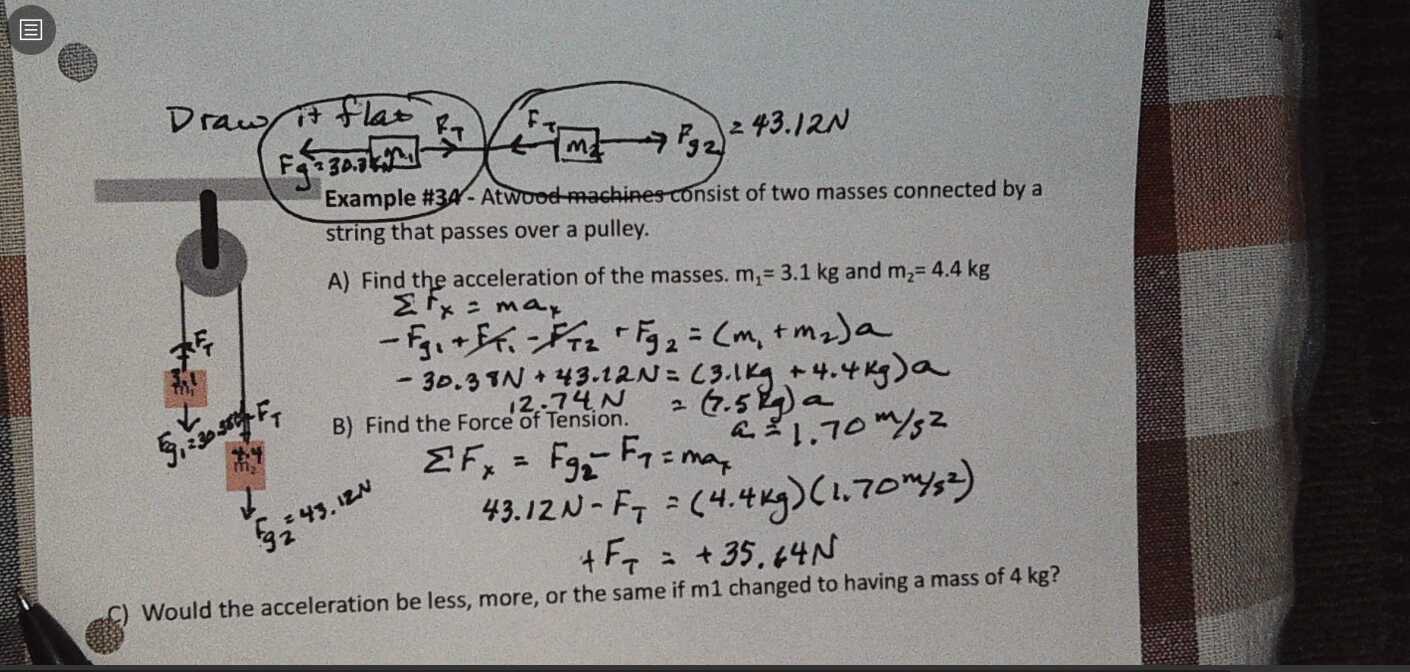 Draw it flat
Fg = 30.38N m1 FT FT m2 Fg2 = 43.12N
Example #34 - Atwood machines consist of two masses connected by a
string that passes over a pulley.
A) Find the acceleration of the masses. m₁= 3.1 kg and m₂= 4.4 kg
ΣFx = max
-Fg1 + FT1 - FT2 + Fg2 = (m1 + m2)a
-30.38N + 43.12N = (3.1kg + 4.4kg)a
12.74N = (7.5kg)a
a = 1.70 m/s2
B) Find the Force of Tension.
ΣFx = Fg2 - FT = max
43.12N - FT = (4.4kg)(1.70 m/s²)
+FT = +35.64N
FT
3.1
m₁
Fg1 = 30.38N
FT
4.4
m₂
Fg2 = 43.12N
C) Would the acceleration be less, more, or the same if m1 changed to having a mass of 4 kg?